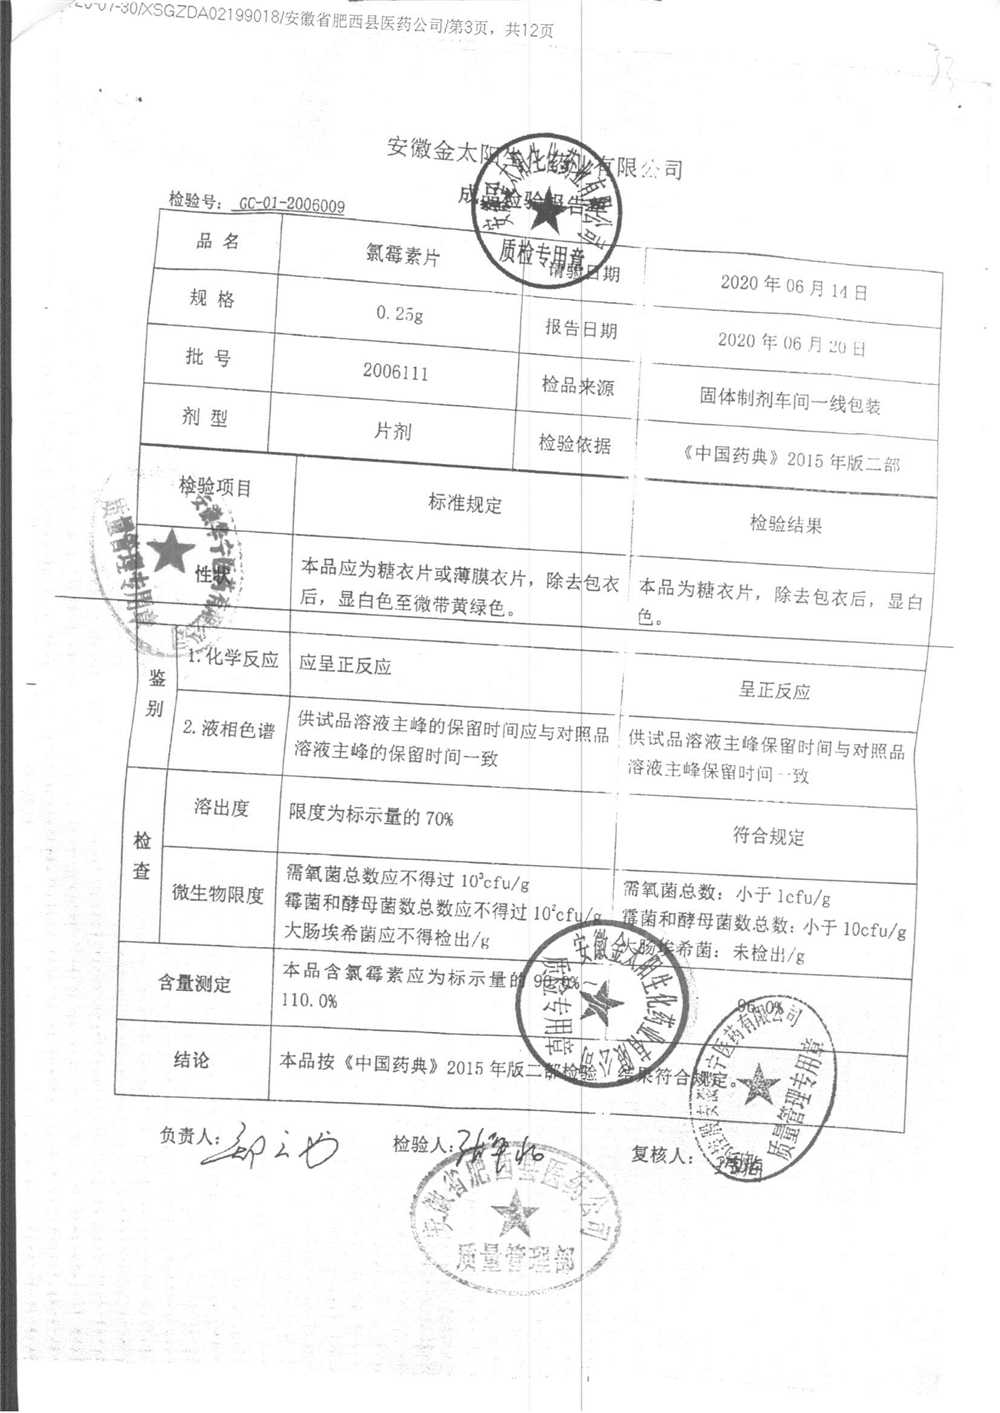 -07-30/XSGZDA02199018/安徽省肥西县医药公司/第3页，共12页
33
安徽金太阳生化药业有限公司
成品检验报告
检验号： GC-01-2006009
品 名 氯霉素片 请验日期 2020 年 06 月 14 日
规 格 0.25g 报告日期 2020 年 06 月 20 日
批 号 2006111 检品来源 固体制剂车间一线包装
剂 型 片剂 检验依据 《中国药典》2015 年版二部
检验项目 标准规定 检验结果
性状 本品应为糖衣片或薄膜衣片，除去包衣 本品为糖衣片，除去包衣后，显白
后，显白色至微带黄绿色。 色。
鉴别 1.化学反应 应呈正反应 呈正反应
2.液相色谱 供试品溶液主峰的保留时间应与对照品 供试品溶液主峰保留时间与对照品
溶液主峰的保留时间一致 溶液主峰保留时间一致
检查 溶出度 限度为标示量的 70% 符合规定
微生物限度 需氧菌总数应不得过 10³cfu/g 需氧菌总数：小于 1cfu/g
霉菌和酵母菌数总数应不得过 10²cfu/g 霉菌和酵母菌数总数：小于 10cfu/g
大肠埃希菌应不得检出/g 大肠埃希菌：未检出/g
含量测定 本品含氯霉素应为标示量的 90.0%～ 96.0%
110.0%
结论 本品按《中国药典》2015 年版二部检验 结果符合规定。
负责人： 检验人： 复核人：
安徽金太阳生化药业有限公司
质检专用章
质量管理专用章
安徽金太阳生化药业有限公司
质检专用章
质量管理专用章
安徽省肥西县医药公司
质量管理部